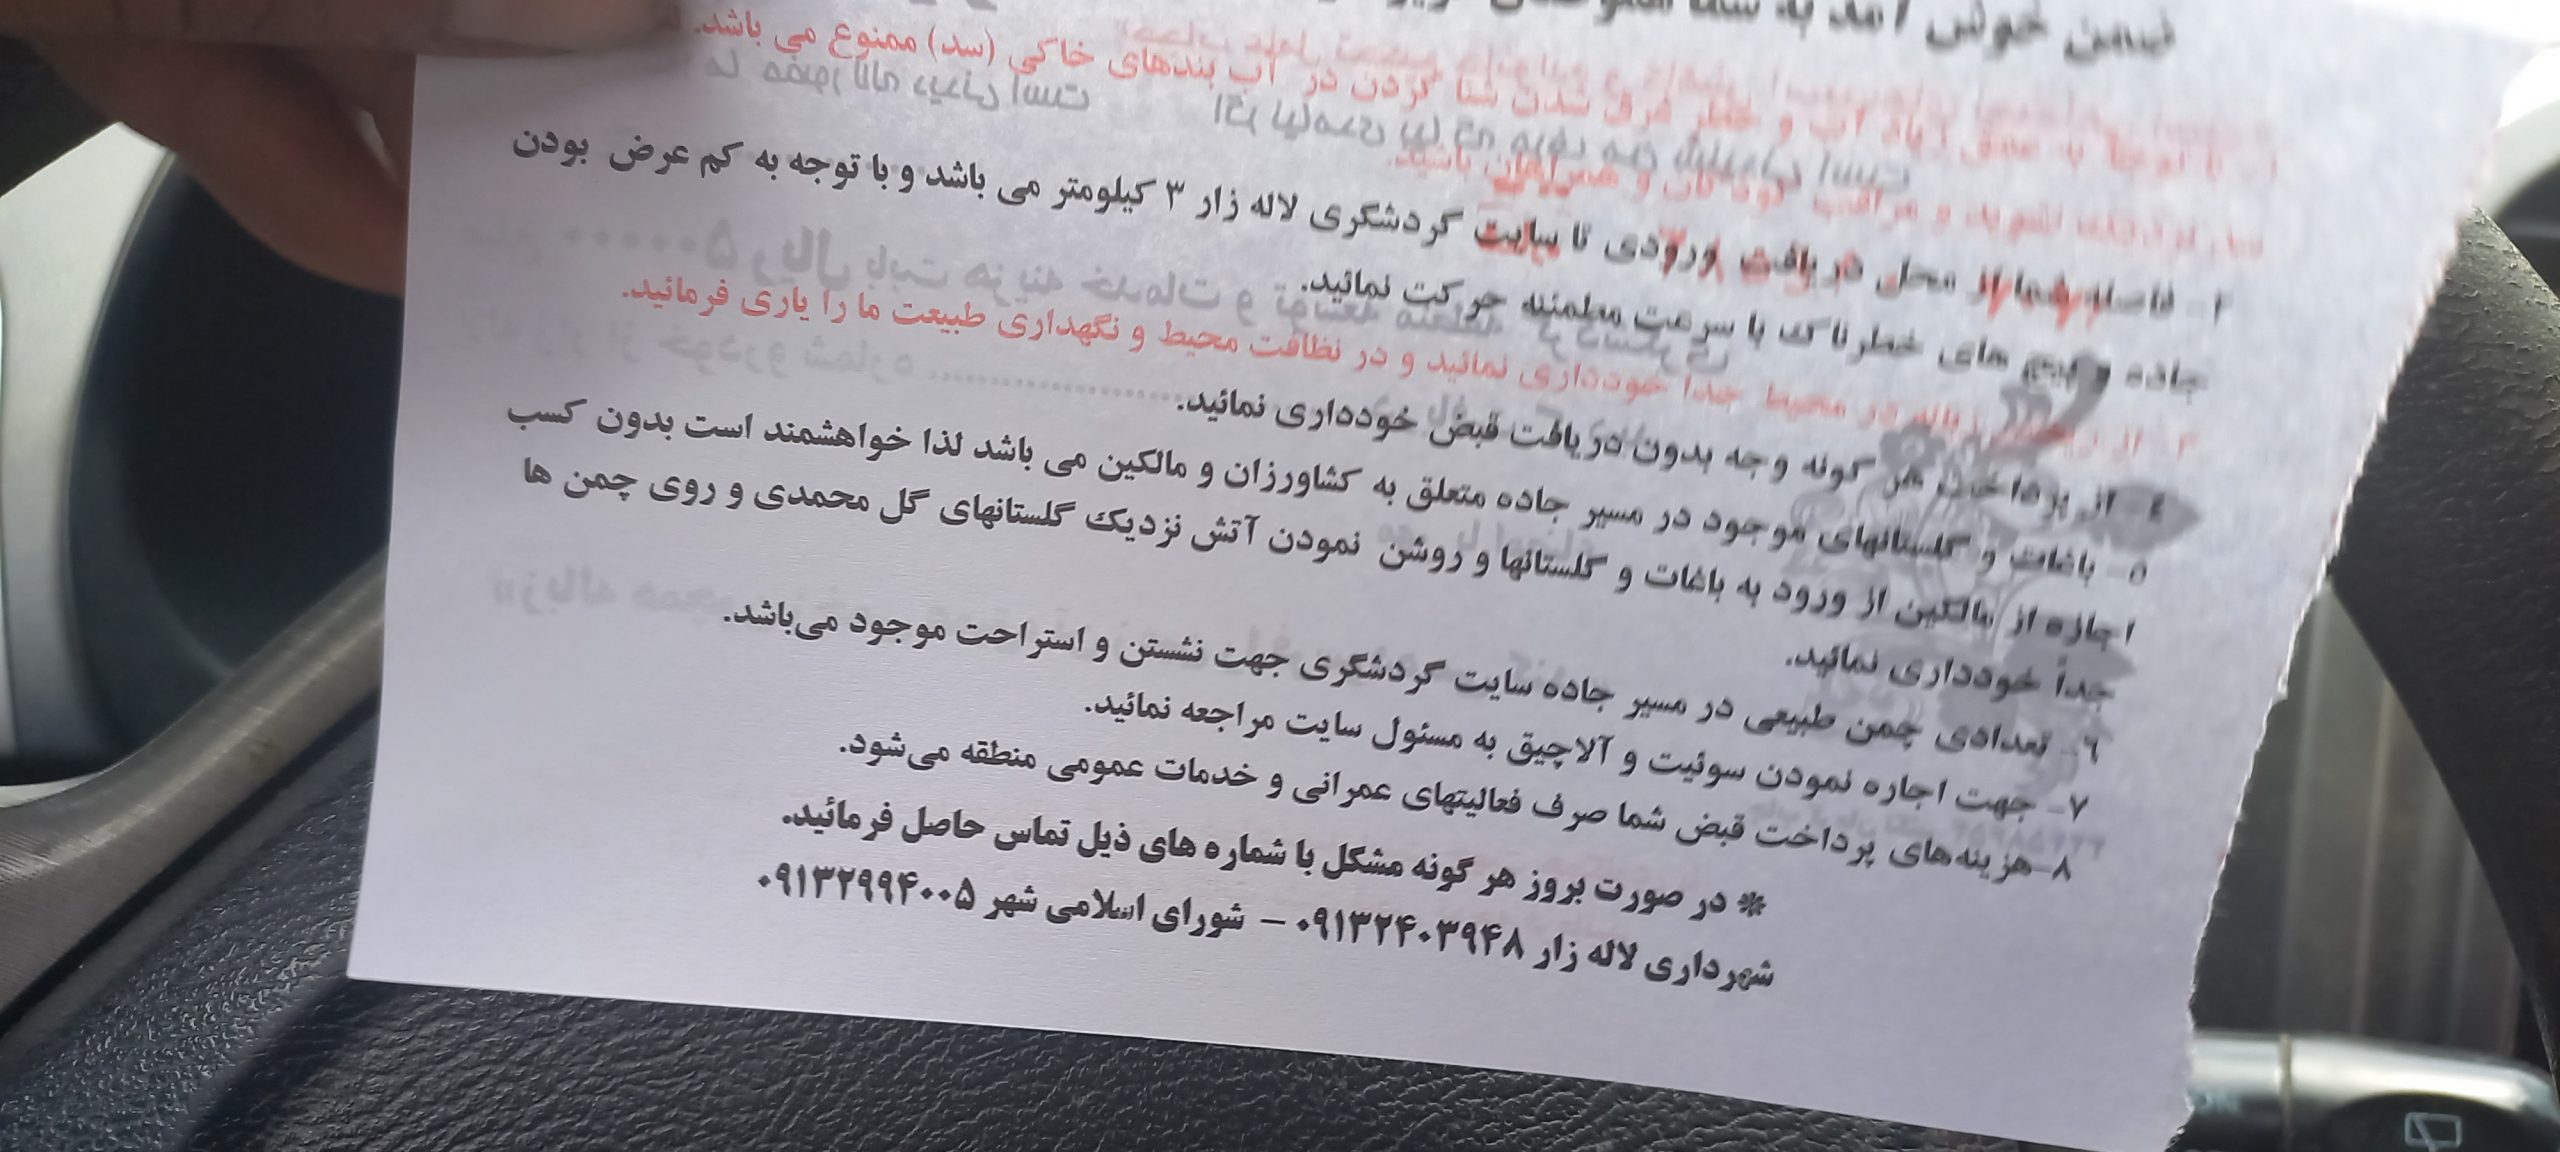 ضمن خوش آمد به شما
۱- با توجه به عمق زیاد آب و خطر غرق شدن شنا کردن در آب بندهای خاکی (سد) ممنوع می باشد.
سد نزدیک نشوید و مراقب کودکان و همراهان باشید.
۲- فاصله شما از محل دریافت ورودی تا سایت گردشگری لاله زار ۳ کیلومتر می باشد و با توجه به کم عرض بودن
جاده و پیچ های خطرناک با سرعت مطمئنه حرکت نمائید.
۳- از ریختن زباله در محیط جدا خودداری نمائید و در نظافت محیط و نگهداری طبیعت ما را یاری فرمائید.
٤- از پرداخت هر گونه وجه بدون دریافت قبض خودداری نمائید.
۵- باغات و گلستانهای موجود در مسیر جاده متعلق به کشاورزان و مالکین می باشد لذا خواهشمند است بدون کسب
اجازه از مالکین از ورود به باغات و گلستانها و روشن نمودن آتش نزدیک گلستانهای گل محمدی و روی چمن ها
جداً خودداری نمائید.
٦- تعدادی چمن طبیعی در مسیر جاده سایت گردشگری جهت نشستن و استراحت موجود می‌باشد.
۷- جهت اجاره نمودن سوئیت و آلاچیق به مسئول سایت مراجعه نمائید.
۸-هزینه‌های پرداخت قبض شما صرف فعالیتهای عمرانی و خدمات عمومی منطقه می‌شود.
* در صورت بروز هر گونه مشکل با شماره های ذیل تماس حاصل فرمائید.
شهرداری لاله زار ۰۹۱۳۲۴۰۳۹۴۸ – شورای اسلامی شهر ۰۹۱۳۲۹۹۴۰۰۵